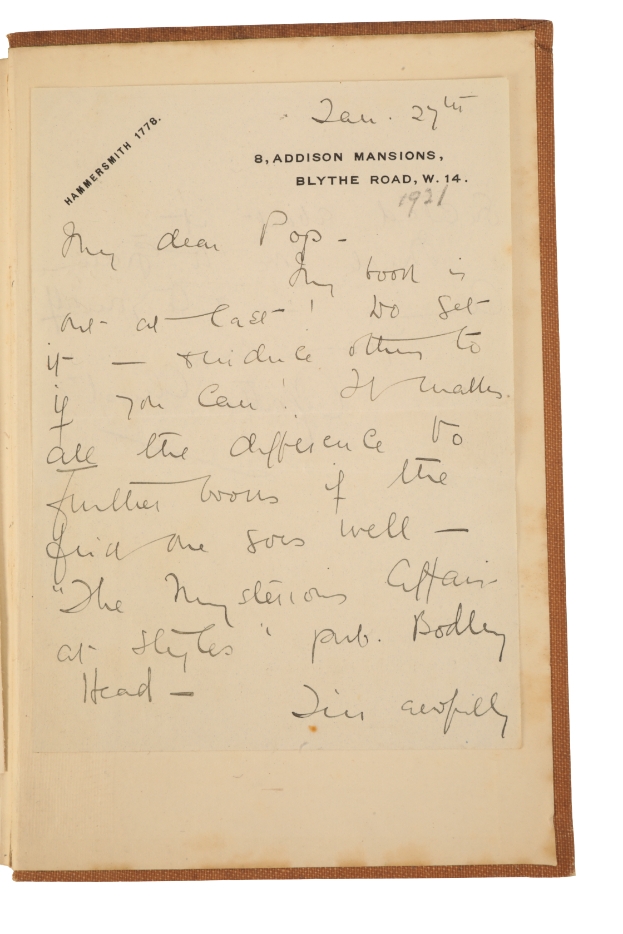 Jan. 27th
HAMMERSMITH 1778.
8, ADDISON MANSIONS,
BLYTHE ROAD, W. 14.
1921
My dear Pop -
My book is
out at last! Do get
it — & induce others to
if you can! It makes
all the difference to
further books if the
first one goes well —
"The Mysterious Affair
at Styles" pub. Bodley
Head —
I'm awfully